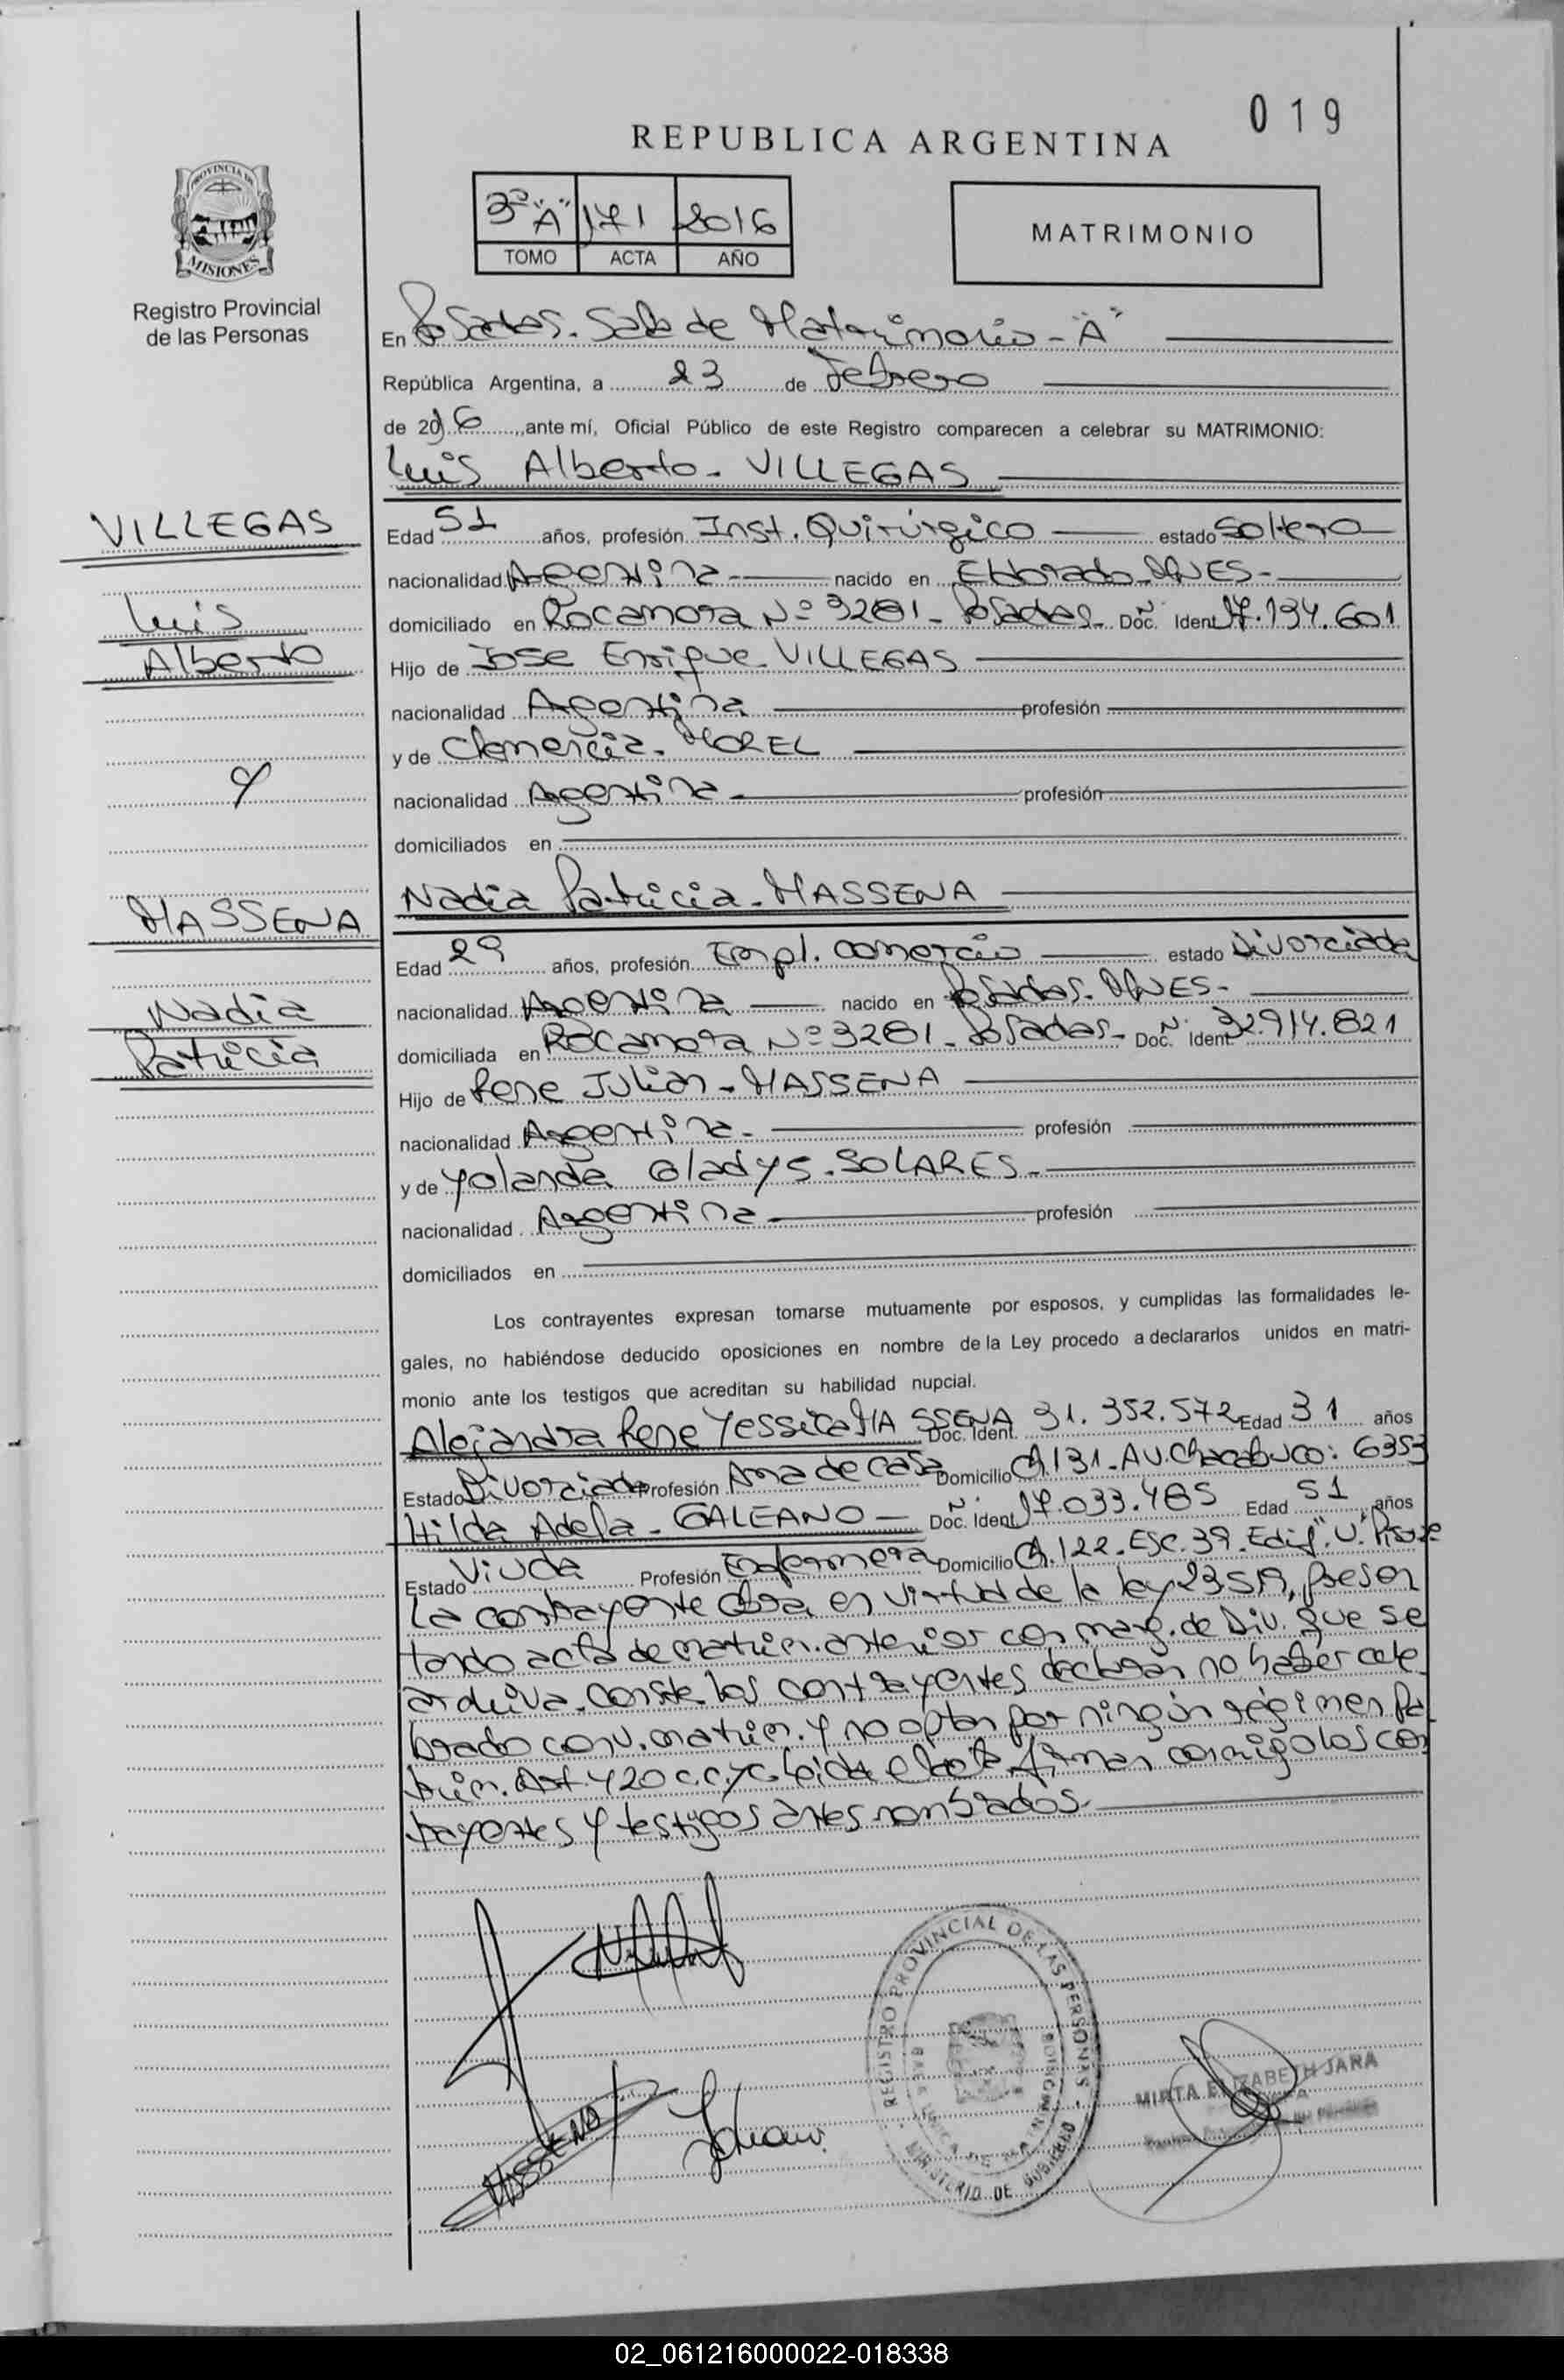 019
REPUBLICA ARGENTINA
PROVINCIA DE
MISIONES
Registro Provincial
de las Personas
3º "A" 171 2016
TOMO ACTA AÑO
MATRIMONIO
En Posadas. Sala de Matrimonio - "A"
República Argentina, a 23 de Febrero
de 2016, ante mí, Oficial Público de este Registro comparecen a celebrar su MATRIMONIO:
Luis Alberto - VILLEGAS
VILLEGAS
Luis
Alberto
Edad 51 años, profesión Inst. Quirúrgico estado Soltero
nacionalidad Argentina - nacido en Eldorado - MNES -
domiciliado en Rocamora Nº 3281 - Posadas - Doc. N. Ident 17.194.601
Hijo de Jose Enrique - VILLEGAS
nacionalidad Argentina profesión
y de Clemencia - MOREL
nacionalidad Argentina - profesión
domiciliados en
y
Nadia Patricia - MASSENA
MASSENA
Nadia
Patricia
Edad 29 años, profesión Empl. comercio estado Divorciada
nacionalidad Argentina nacido en Posadas. MNES -
domiciliada en Rocamora Nº 3281 - Posadas - Doc. N. Ident 32.914.821
Hijo de Rene Julian - MASSENA
nacionalidad Argentina - profesión
y de Yolanda Gladys - SOLARES -
nacionalidad Argentina - profesión
domiciliados en
Los contrayentes expresan tomarse mutuamente por esposos, y cumplidas las formalidades le-
gales, no habiéndose deducido oposiciones en nombre de la Ley procedo a declararlos unidos en matri-
monio ante los testigos que acreditan su habilidad nupcial.
Alejandra Rene Yessica MASSENA Doc. Ident. 31.352.572 Edad 31 años
Estado Divorciada Profesión Ama de casa Domicilio Ch.131 - AV. Chacabuco: 6353
Hilda Adela - GALEANO - Doc. N. Ident 17.033.485 Edad 51 años
Estado Viuda Profesión Enfermera Domicilio Ch.122. Esc. 39. Edif. "U".
La contrayente obra en virtud de la ley 23515, presen
tando acta de matrim. anterior con marg. de Div. que se
archiva. Conste los contrayentes declaran no haber cele
brado conv. matrim. y no optan por ningún régimen pa
trim. Art 420 c.c.yc. Leída el acta firman conmigo los con
trayentes y testigos antes nombrados.
MASSENA
REGISTRO PROVINCIAL DE LAS PERSONAS
MINISTERIO DE GOBIERNO
MIRTA ELIZABETH JARA
02_061216000022-018338